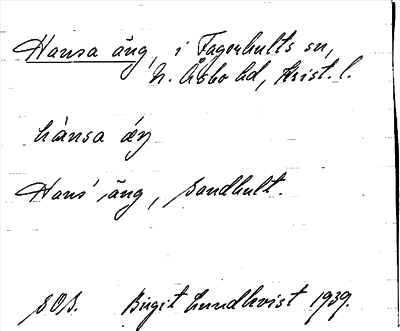 Hansa äng, i Fagerhults sn,
N. Åsbo hd, Krist. l.
hánsa áŋ
Hans' äng, Sandhult.
SOB. Birgit Lundkvist 1939.